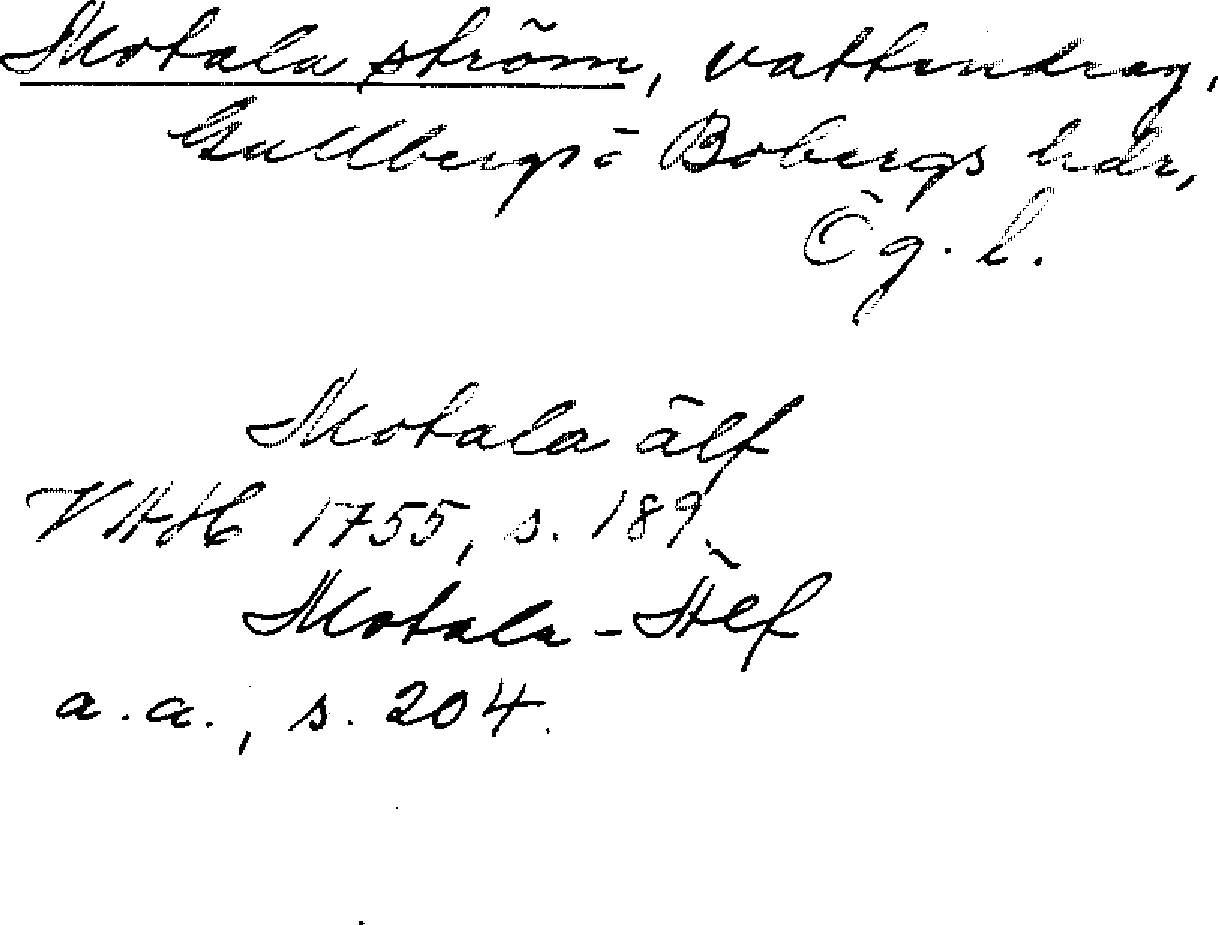 Motala ström, vattendrag,
Gullbergs o Bobergs hdr,
Ög. l.
Motala älf
VAH 1755, s. 189.
Motala-Älf
a.a., s. 204.